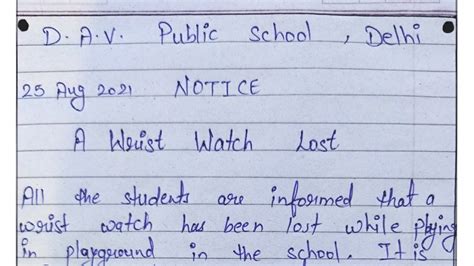 D.A.V. Public School, Delhi
25 Aug 2021 NOTICE
A Wrist Watch Lost
All the students are informed that a
wrist watch has been lost while plying
in playground in the school. It is